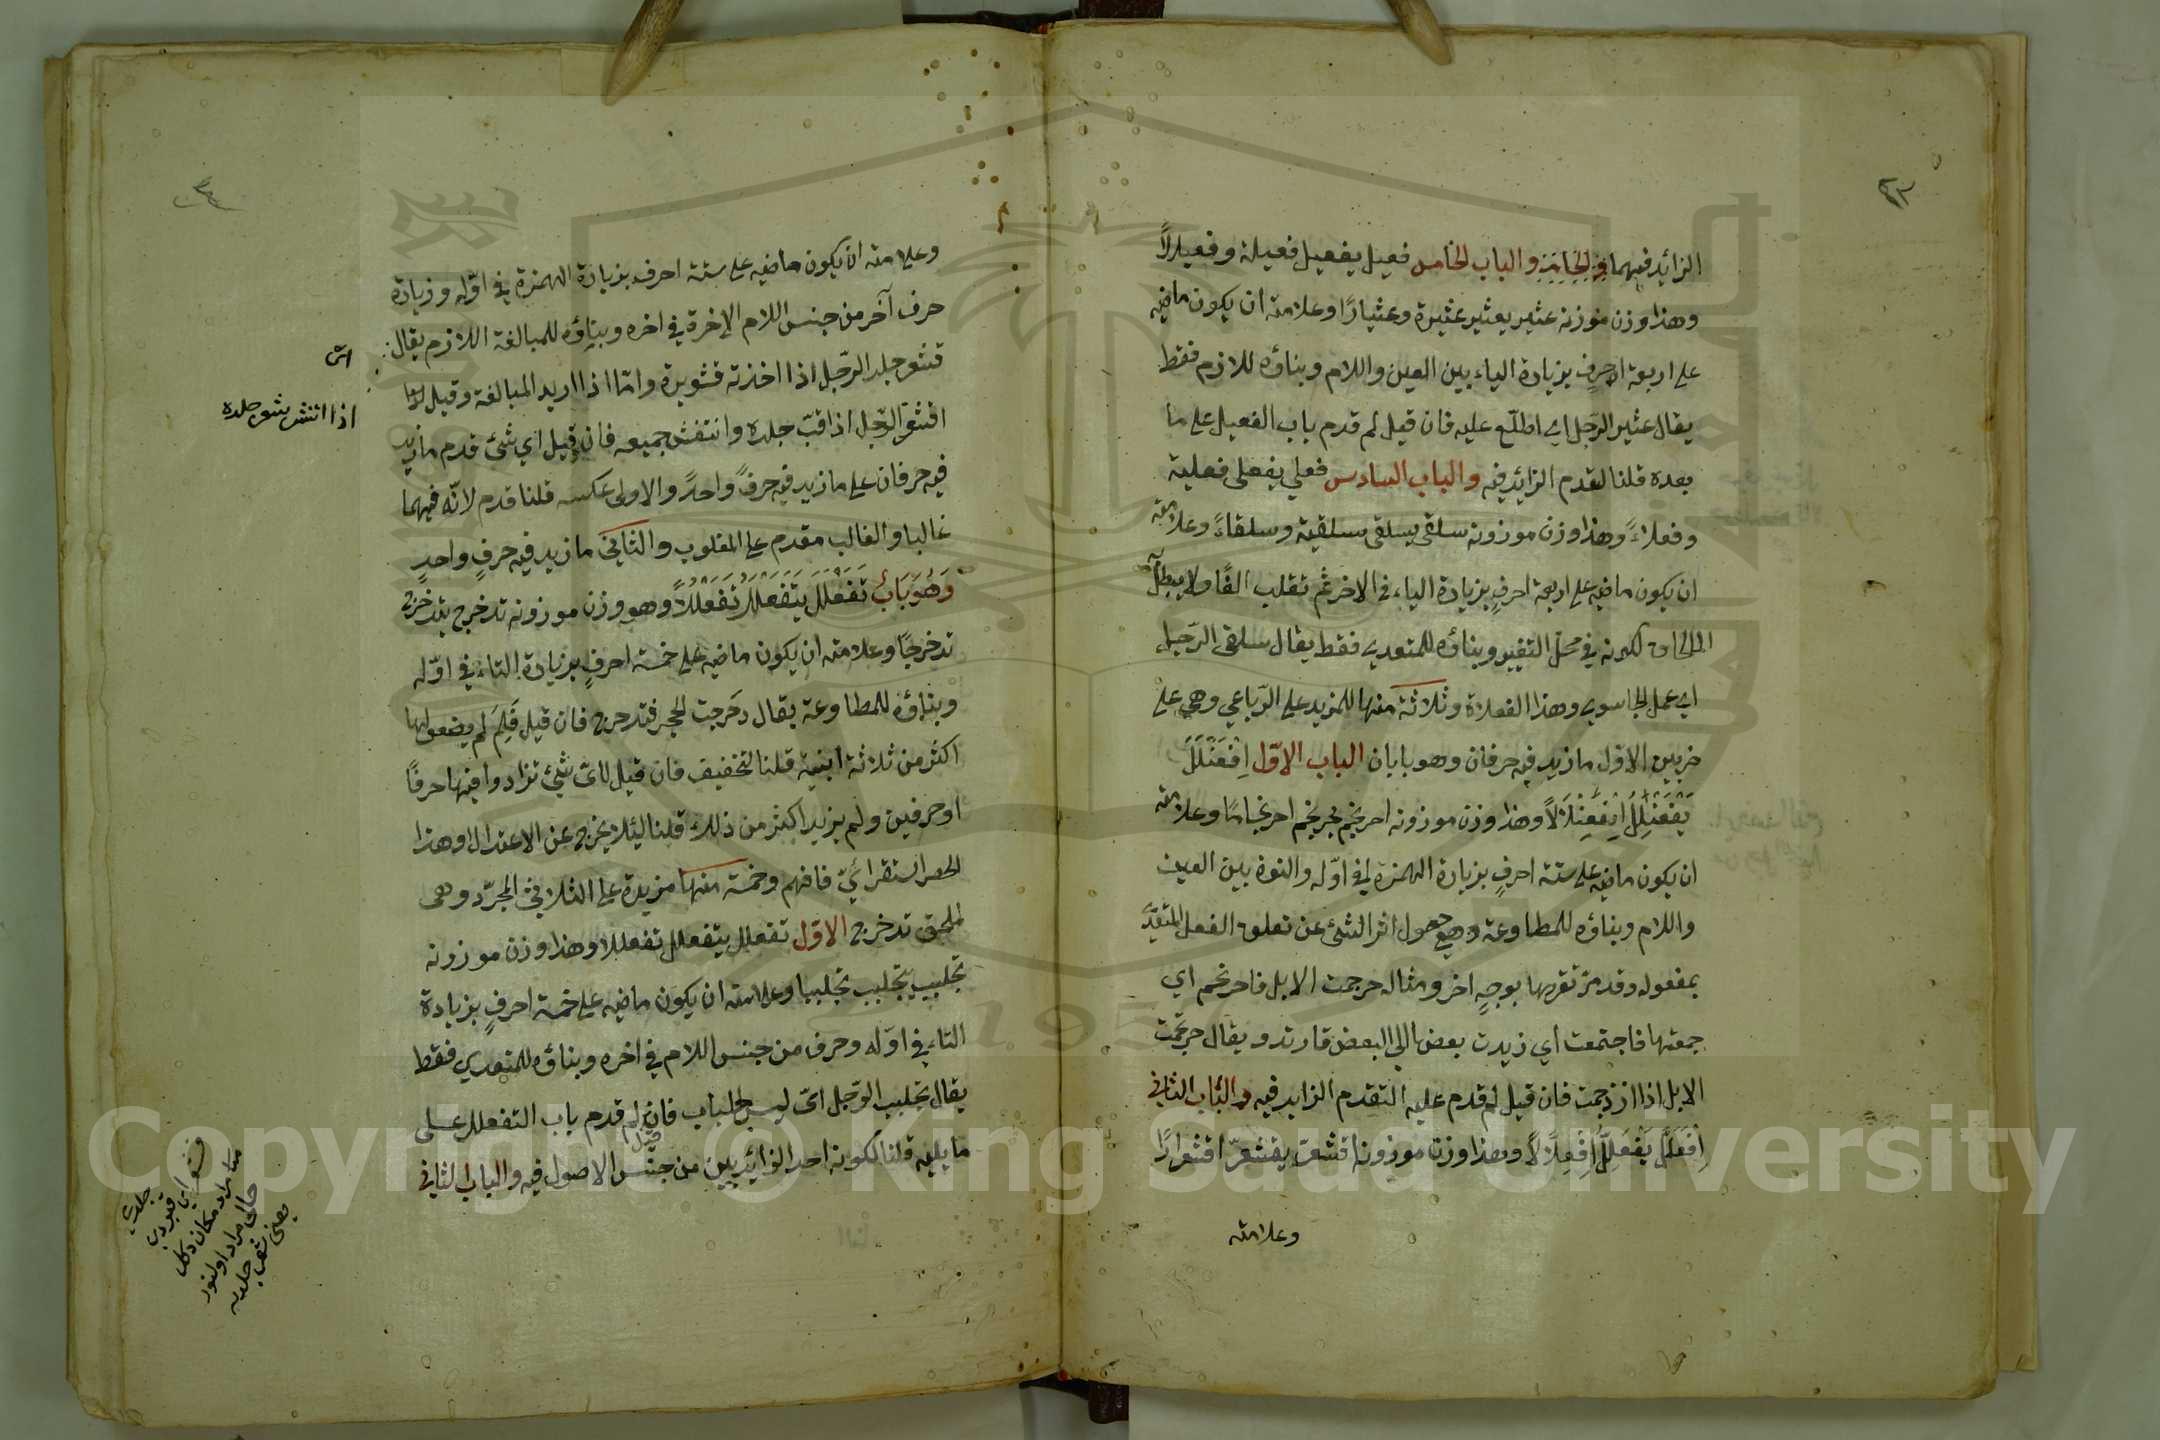 الزائد فيهما في الخامس والباب الخامس فعيل يفعيل فعيلة وفعيلالًا
وهذا وزن موزنه عثير يعثير عثيرة وعثيارًا وعلامته ان يكون ماضيه
على اربعة احرف بزيادة الياء بين العين واللام وبناؤه للازم فقط
يقال عثير الرّجل اي اطلّع عليه فان قيل لم قدم باب الفعيل على ما
بعده قلنا لتقدم الزائد فيه والباب السادس فعلي يفعلى فعلية
وفعلاءً وهذا وزن موزونه سلقى يسلقى سلقية وسلقاءً وعلامته
ان يكون ماضيه على اربعة احرفٍ بزيادة الياء في الاخر ثم تقلب الفًا ولا يبطل
الالحاق لكونه في محلّ التغيير وبناؤه للمتعدي فقط يقال سلقى الرّجل
اي عمل وهذا الفعلاة وثلاثة منها للمزيد على الرّباعي وهي على
ضربين الاول ما زيد فيه حرفان وهو بابان الباب الاوّل اِفْعَنْلَلَ
يَفْعَنْلِلُ اِفْعِنْلَالًا وهذا وزن موزونه احرنجم يحرنجم احرنجامًا وعلامته
ان يكون ماضيه على ستة احرفٍ بزيادة الهمزة في اوّله والنون بين العين
واللام وبناؤه للمطاوعة وهي حصول اثر الشئ عن تعلق الفعل المتعدّي
بمفعوله وقد مرّ تقرّها بوجهٍ اخر ومثاله حرجمت الابل فاحرنجم اي
جمعتها فاجتمعت اي زيدت بعضها الى البعض فارتد ويقال حرجمت
الابل اذا ازدجمت فان قيل لم قدم عليه التقدم الزايد فيه والباب الثاني
اِفْعَلَلَّ يَفْعَلِلُّ اِفْعِلّالًا وهذا وزن موزونه اقشعرّ يقشعرّ اقشعرارًا
وعلامته
وعلامته ان يكون ماضيه على ستة احرف بزيادة الهمزة في اوّله وزيادة
حرف آخر من جنس اللام الاخرة في اخره وبناؤه للمبالغة اللازم يقال
قشعر جلد الرّجل اذا اخذته قشويرة وامّا اذا اريد المبالغة وقيل
اقشعرّ الرّجل اذا قبّ جلده وانتفش جميعه فان قيل اي شئ قدم ما زيد
فيه حرفان على ما زيد فيه حرفٌ واحدٌ والاولى عكسه قلنا قدم لانّه فيهما
غالبا والغالب مقدم على المغلوب والثاني ما زيد فيه حرفٍ واحدٍ
وَهُوَ بَابُ تَفَعْلَلَ يَتَفَعْلَلُ تَفَعْلُلًا وهو وزن موزونه تدحرج يتدحرج
تدحرجًا وعلامته ان يكون ماضيه على خمسة احرفٍ بزيادة التاء في اوّله
وبناؤه للمطاوعة يقال دحرجت الحجر فتدحرج فان قيل فَلِمَ لم يضعوا لها
اكثر من ثلاثة ابنية قلنا لتخفيف فان قيل لايّ شئ تزادوا فيها حرفًا
او حرفين ولم يزيد اكثر من ذلك قلنا ليئلا يخرج عن الاعتدال وهذا
الحصر استقرائيّ فافهم وخمسة منها مزيدة على الثلاثي المجرّد وهي
لملحق تدحرج الاوّل تفعلل يتفعلل تفعللا وهذا وزن موزونه
تجلبب يتجلبب تجلببا وعلامته ان يكون ماضيه على خمسة احرفٍ بزيادة
التاء في اوّله وحرف من جنس اللام في اخره وبناؤه للمتعدي فقط
يقال تجلبب الرّجل ايّ لبس الجلباب فان قيل لم قدم باب التفعلل على
ما يليه قلنا لكونه احد الزّائديين من جنس الاصول فيه والباب الثاني
اى
اذا انتفش شعر جلده